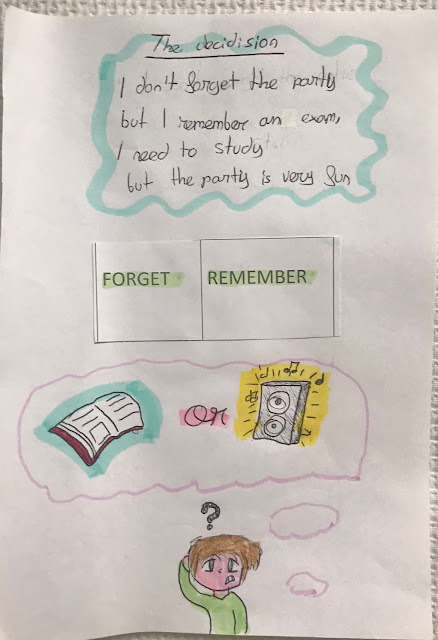 The decidision
I don't forget the party
but I remember an exam,
I need to study
but the party is very fun
FORGET REMEMBER
OR
?